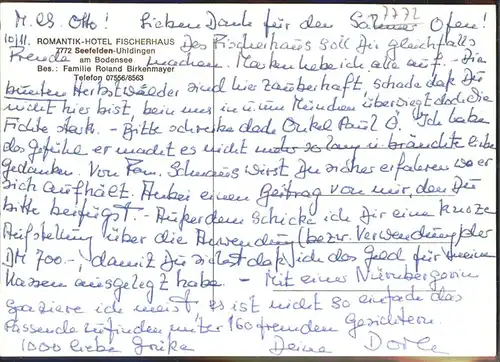 M. lb. Otto! Lieben Dank für den Sommer Ofen!
7772
10/11. ROMANTIK-HOTEL FISCHERHAUS
7772 Seefelden-Uhldingen
am Bodensee
Bes.: Familie Roland Birkenmayer
Telefon 07556/8563
Das Fischerhaus soll Dir gleichfalls
Freude machen. Marken hebe ich alle auf. - Die
bunten Herbstwälder sind hier zauberhaft, schade daß Du
nicht hier bist, bei uns in München überwiegt doch die
Fichte stark. - Bitte schreibe doch Onkel Paul Ö. Ich habe
das Gefühl er macht es nicht mehr so lang u. bräuchte liebe
Gedanken. Von Fam. wirst Du sicher erfahren wo er
sich aufhält. Anbei einen Beitrag von mir, den Du
bitte beifügst - Außerdem schicke ich Dir eine kurze
Aufstellung über die Anwendung (bezw. Verwendung) der
DM 700.-, damit Du siehst daß ich das Geld für
Kassen ausgelegt habe. - Mit einer Nürnbergerin
spaziere ich meist, es ist nicht so einfach das
Passende zu finden unter 160 fremden Gesichtern.
1000 liebe Grüße Deine Dorle